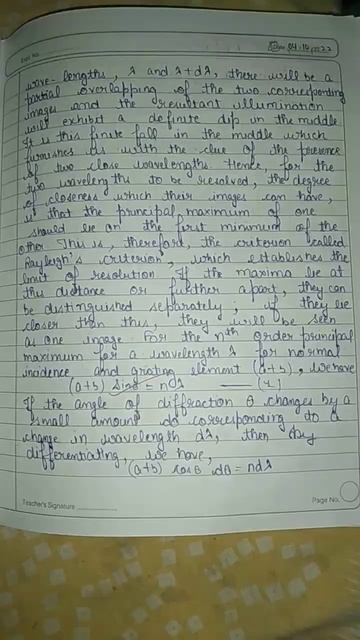 Expt. No.
Date 04-10-2022
wave-lengths, λ and λ+dλ, there will be a
partial overlapping of the two corresponding
images and the resultant illumination
will exhibit a definite dip in the middle.
It is this finite fall in the middle which
furnishes us with the clue of the presence
of two close wavelengths. Hence, for the
two wavelengths to be resolved, the degree
of closeness which their images can have,
is that the principal maximum of one
should lie on the first minimum of the
other. This is, therefore, the criterion called
Rayleigh's criterion, which establishes the
limit of resolution. If the maxima lie at
this distance or further apart, they can
be distinguished separately; if they lie
closer than this, they will be seen
as one image. For the nth order principal
maximum for a wavelength λ for normal
incidence and grating element (a+b), we have
(a+b) sinθ = nλ —— (1)
If the angle of diffraction θ changes by a
small amount dθ corresponding to a
change in wavelength dλ, then by
differentiating, we have,
(a+b) cosθ dθ = ndλ
Teacher's Signature
Page No.